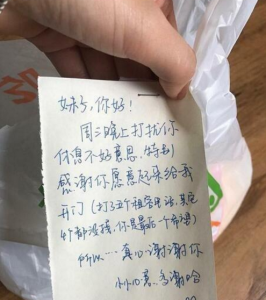 妹子,你好!
周三晚上打扰你
休息不好意思,特别
感谢你愿意起来给我
开门(打了五个租客电话,其它
4个都没接,你是最后一个希望)
所以…真心谢谢你
小小心意,多谢哈